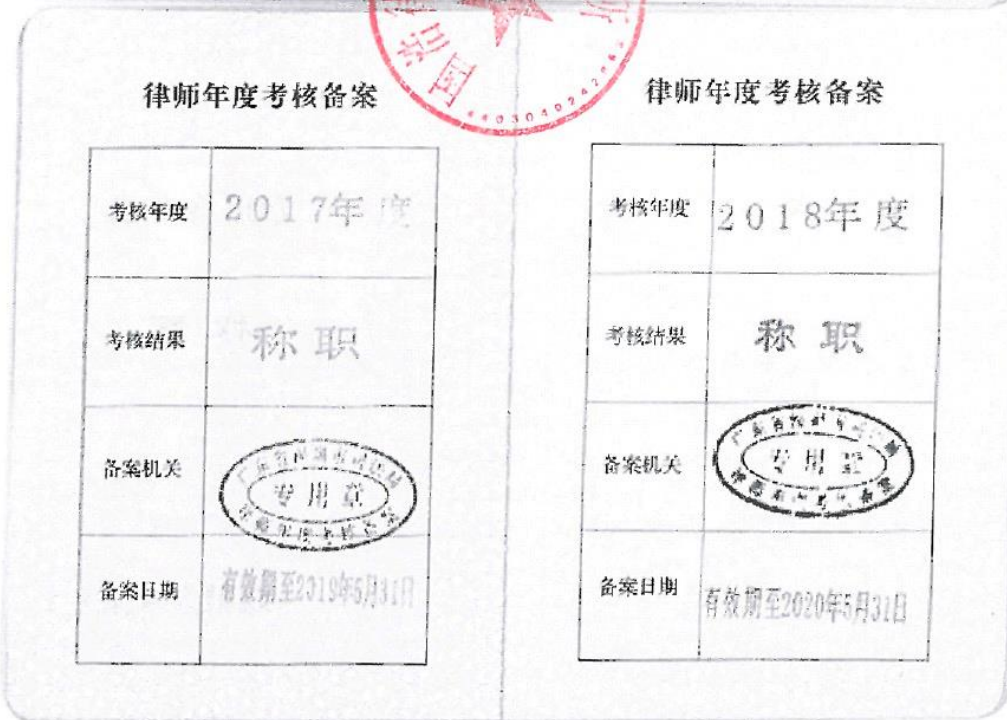 律师年度考核备案
考核年度 2017年度
考核结果 称职
备案机关
备案日期 有效期至2019年5月31日
律师年度考核备案
考核年度 2018年度
考核结果 称职
备案机关
备案日期 有效期至2020年5月31日